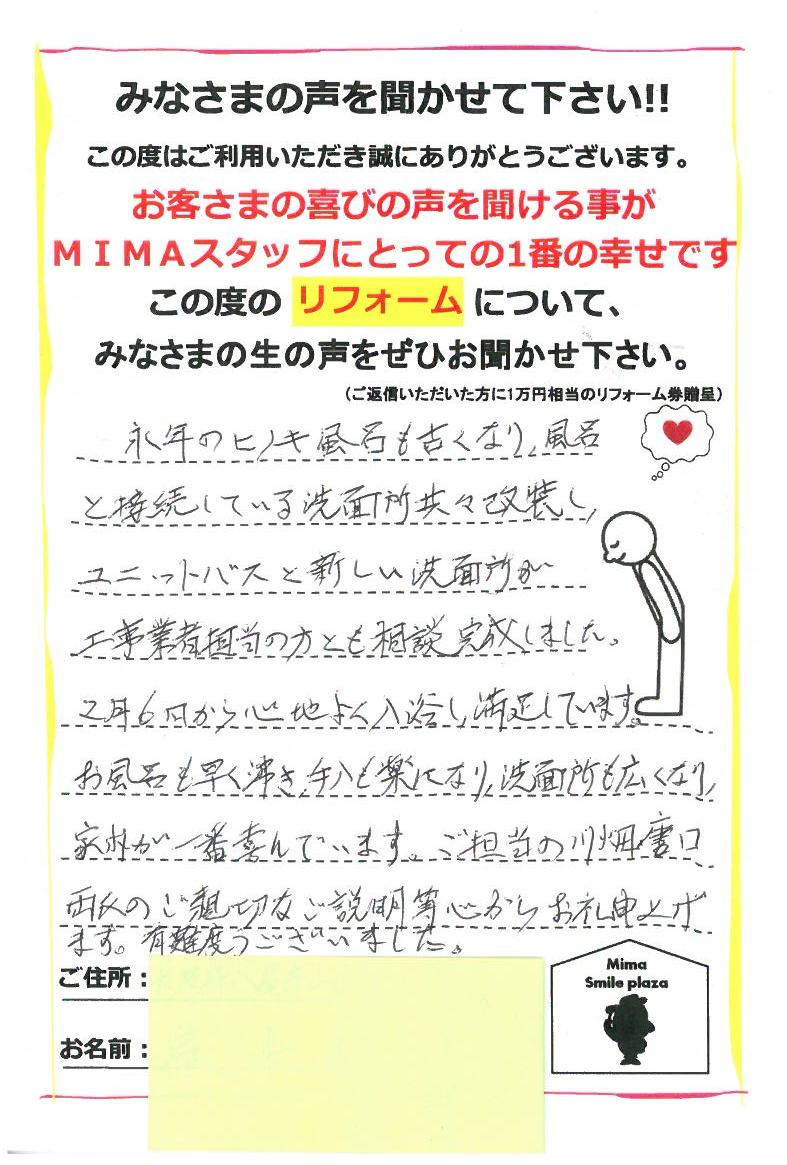 みなさまの声を聞かせて下さい!!
この度はご利用いただき誠にありがとうございます。
お客さまの喜びの声を聞ける事が
ＭＩＭＡスタッフにとっての1番の幸せです
この度の リフォーム について、
みなさまの生の声をぜひお聞かせ下さい。
（ご返信いただいた方に1万円相当のリフォーム券贈呈）
永年のヒノキ風呂も古くなり、風呂
と接続している洗面所共々改装し、
ユニットバスと新しい洗面所が
工事業者担当の方とも相談完成しました。
2月6日から心地よく入浴し満足しています。
お風呂も早く沸き、手入も楽になり、洗面所も広くなり、
家内が一番喜んでいます。ご担当の川畑 口
両氏のご親切なご説明等心からお礼申上げ
ます。有難度うございました。
ご住所：
お名前：
Mima
Smile plaza